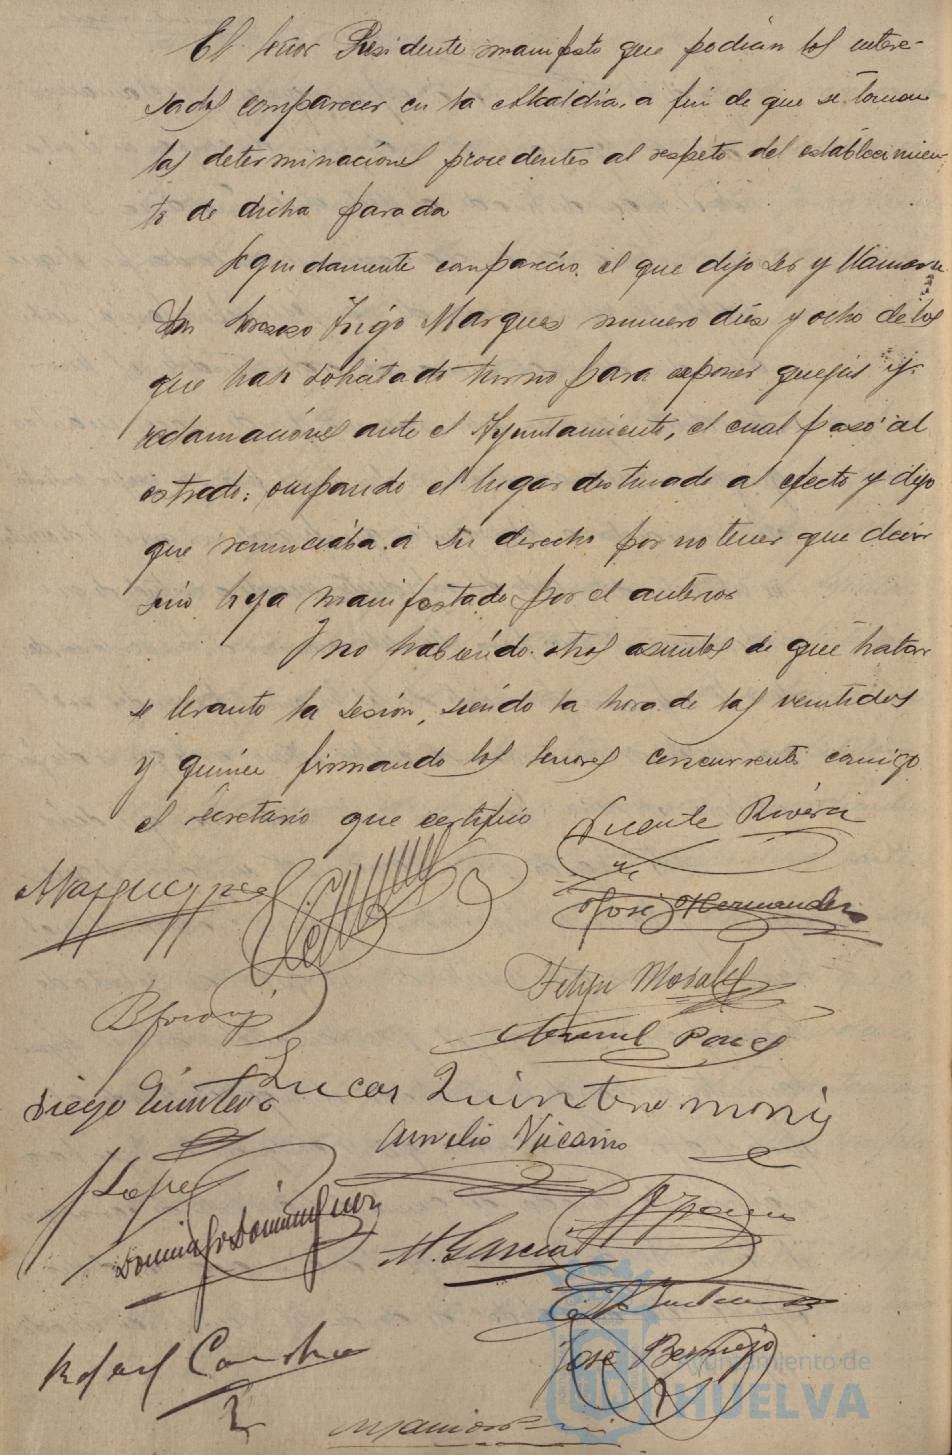 El señor Presidente manifesto que podian los intere-
sados comparecer en la Alcaldía, a fin de que se tomen
las determinaciónes procedentes al respeto del establecimien-
to de dicha parada
Seguidamente compareció el que dijo ser y llamarse
Don Trigo Marques numero diés y ocho de los
que han solicitado turno para exponer quejas y
reclamaciónes ante el Ayuntamiento, el cual pasó al
estrado; ocupando el lugar destinado al efecto y dijo
que renunciaba a su derecho por no tener que decir
manifestado por el anterior
Y no habiéndo otros asuntos de que tratar
se levanto la sesión, siendo la hora de las veintidos
y quince firmando los señores concurrentes conmigo
el secretario que certifico
Vicente Rivera
José Hernandez
Felipe Morales
Manuel Ponce
Diego Quintero
Lucas Quintero
Aurelio Vizcaino
J Lopez
Domingo Dominguez
M. Garcia
José Bermejo
Rafael
Ayuntamiento de
HUELVA